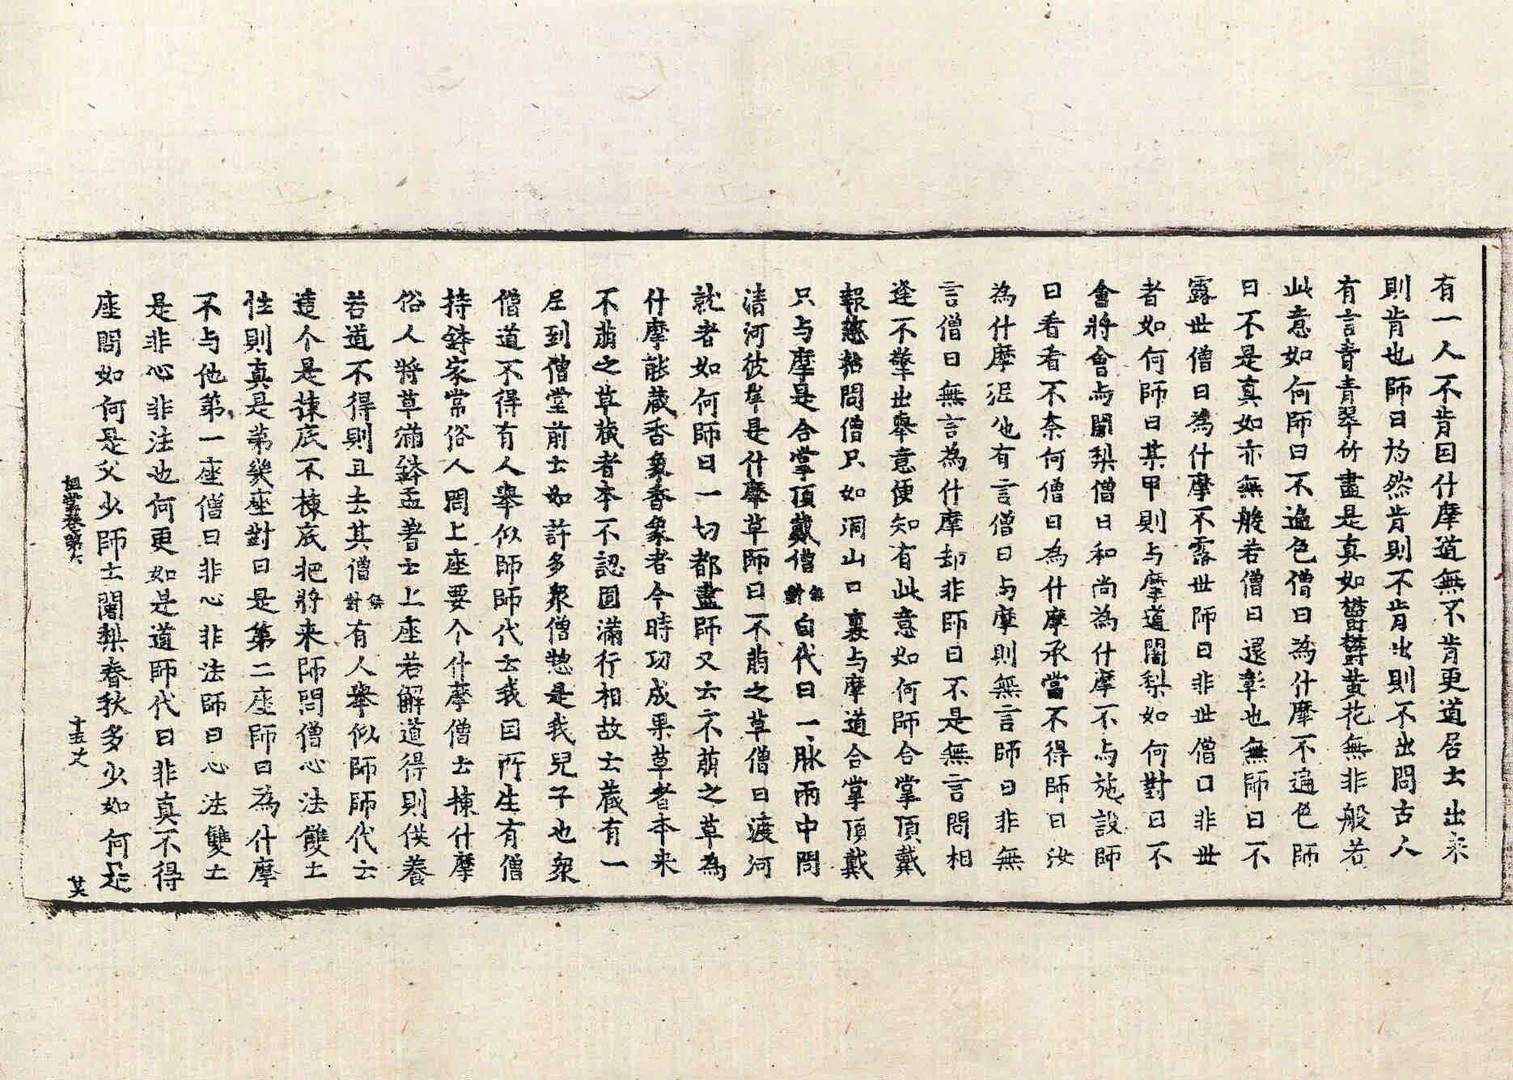 有一人不肯因什摩道無不肯更道居士出來
則肯也師曰灼然肯則不肯出則不出問古人
有言青青翠竹盡是真如欝欝黄花無非般若
此意如何師曰不遍色僧曰為什摩不遍色師
曰不是真如亦無般若僧曰還彰也無師曰不
露世僧曰為什摩不露世師曰非世僧曰非世
者如何師曰某甲則与摩道闍梨如何對曰不
會將會与闍梨僧曰和尚為什摩不与施設師
曰看看不奈何僧曰為什摩承當不得師曰汝
為什摩泥他有言僧曰与摩則無言師曰非無
言僧曰無言為什摩却非師曰不是無言問相
逢不擎出舉意便知有此意如何師合掌頂戴
報慈拈問僧只如洞山口裏与摩道合掌頂戴
只与摩是合掌頂戴僧無對自代曰一脉兩中問
清河彼岸是什摩草師曰不萠之草僧曰渡河
就者如何師曰一切都盡師又云不萠之草為
什摩能藏香象香象者今時功成果草者本来
不萠之草藏者本不認圓滿行相故云藏有一
尼到僧堂前云如許多衆僧惣是我兒子也衆
僧道不得有人舉似師師代云我因所生有僧
持鉢家常俗人問上座要个什摩僧云揀什摩
俗人將草滿鉢盂著云上座若解道得則供養
若道不得則且去其僧無對有人舉似師師代云
這个是揀底不揀底把將来師問僧心法雙亡
性則真是第幾座對曰是第二座師曰為什摩
不与他第一座僧曰非心非法師曰心法雙亡
是非心非法也何更如是道師代曰非真不得
座問如何是父少師云闍梨春秋多少如何是
祖堂卷第六 十五丈